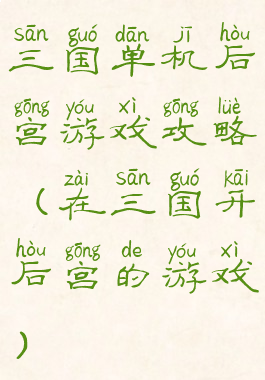 sān guó dān jī hòu
三国单机后
gōng yóu xì gōng lüè
宫游戏攻略
zài sān guó kāi
（在三国开
hòu gōng de yóu xì
后宫的游戏
）